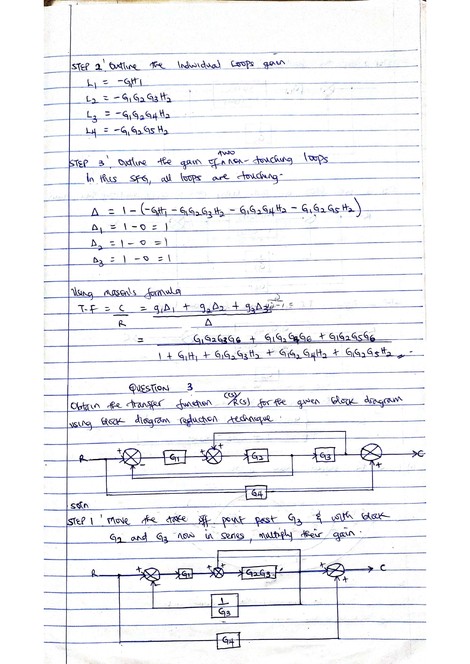 STEP 2: Outline the Individual Loops gain
L1 = -GH1
L2 = -G1G2G3H2
L3 = -G1G2G4H2
L4 = -G1G2G5H2
STEP 3: Outline the gain of two non-touching loops
In this SFG, all loops are touching.
Δ = 1 - (-GH1 - G1G2G3H2 - G1G2G4H2 - G1G2G5H2)
Δ1 = 1 - 0 = 1
Δ2 = 1 - 0 = 1
Δ3 = 1 - 0 = 1
Using mason's formula
T.F = C/R = g1Δ1 + g2Δ2 + g3Δ3 / Δ
= G1G2G3G6 + G1G2G4G6 + G1G2G5G6
1 + G1H1 + G1G2G3H2 + G1G2G4H2 + G1G2G5H2
QUESTION 3
Obtain the transfer function C(s)/R(s) for the given block diagram
using block diagram reduction technique.
R + - G1 + + G2 G3 + + C
G4
soln
STEP 1: Move the take off point past G3 & with block
G2 and G3 now in series, multiply their gain.
R + - G1 + + G2G3 + + C
1/G3
G4